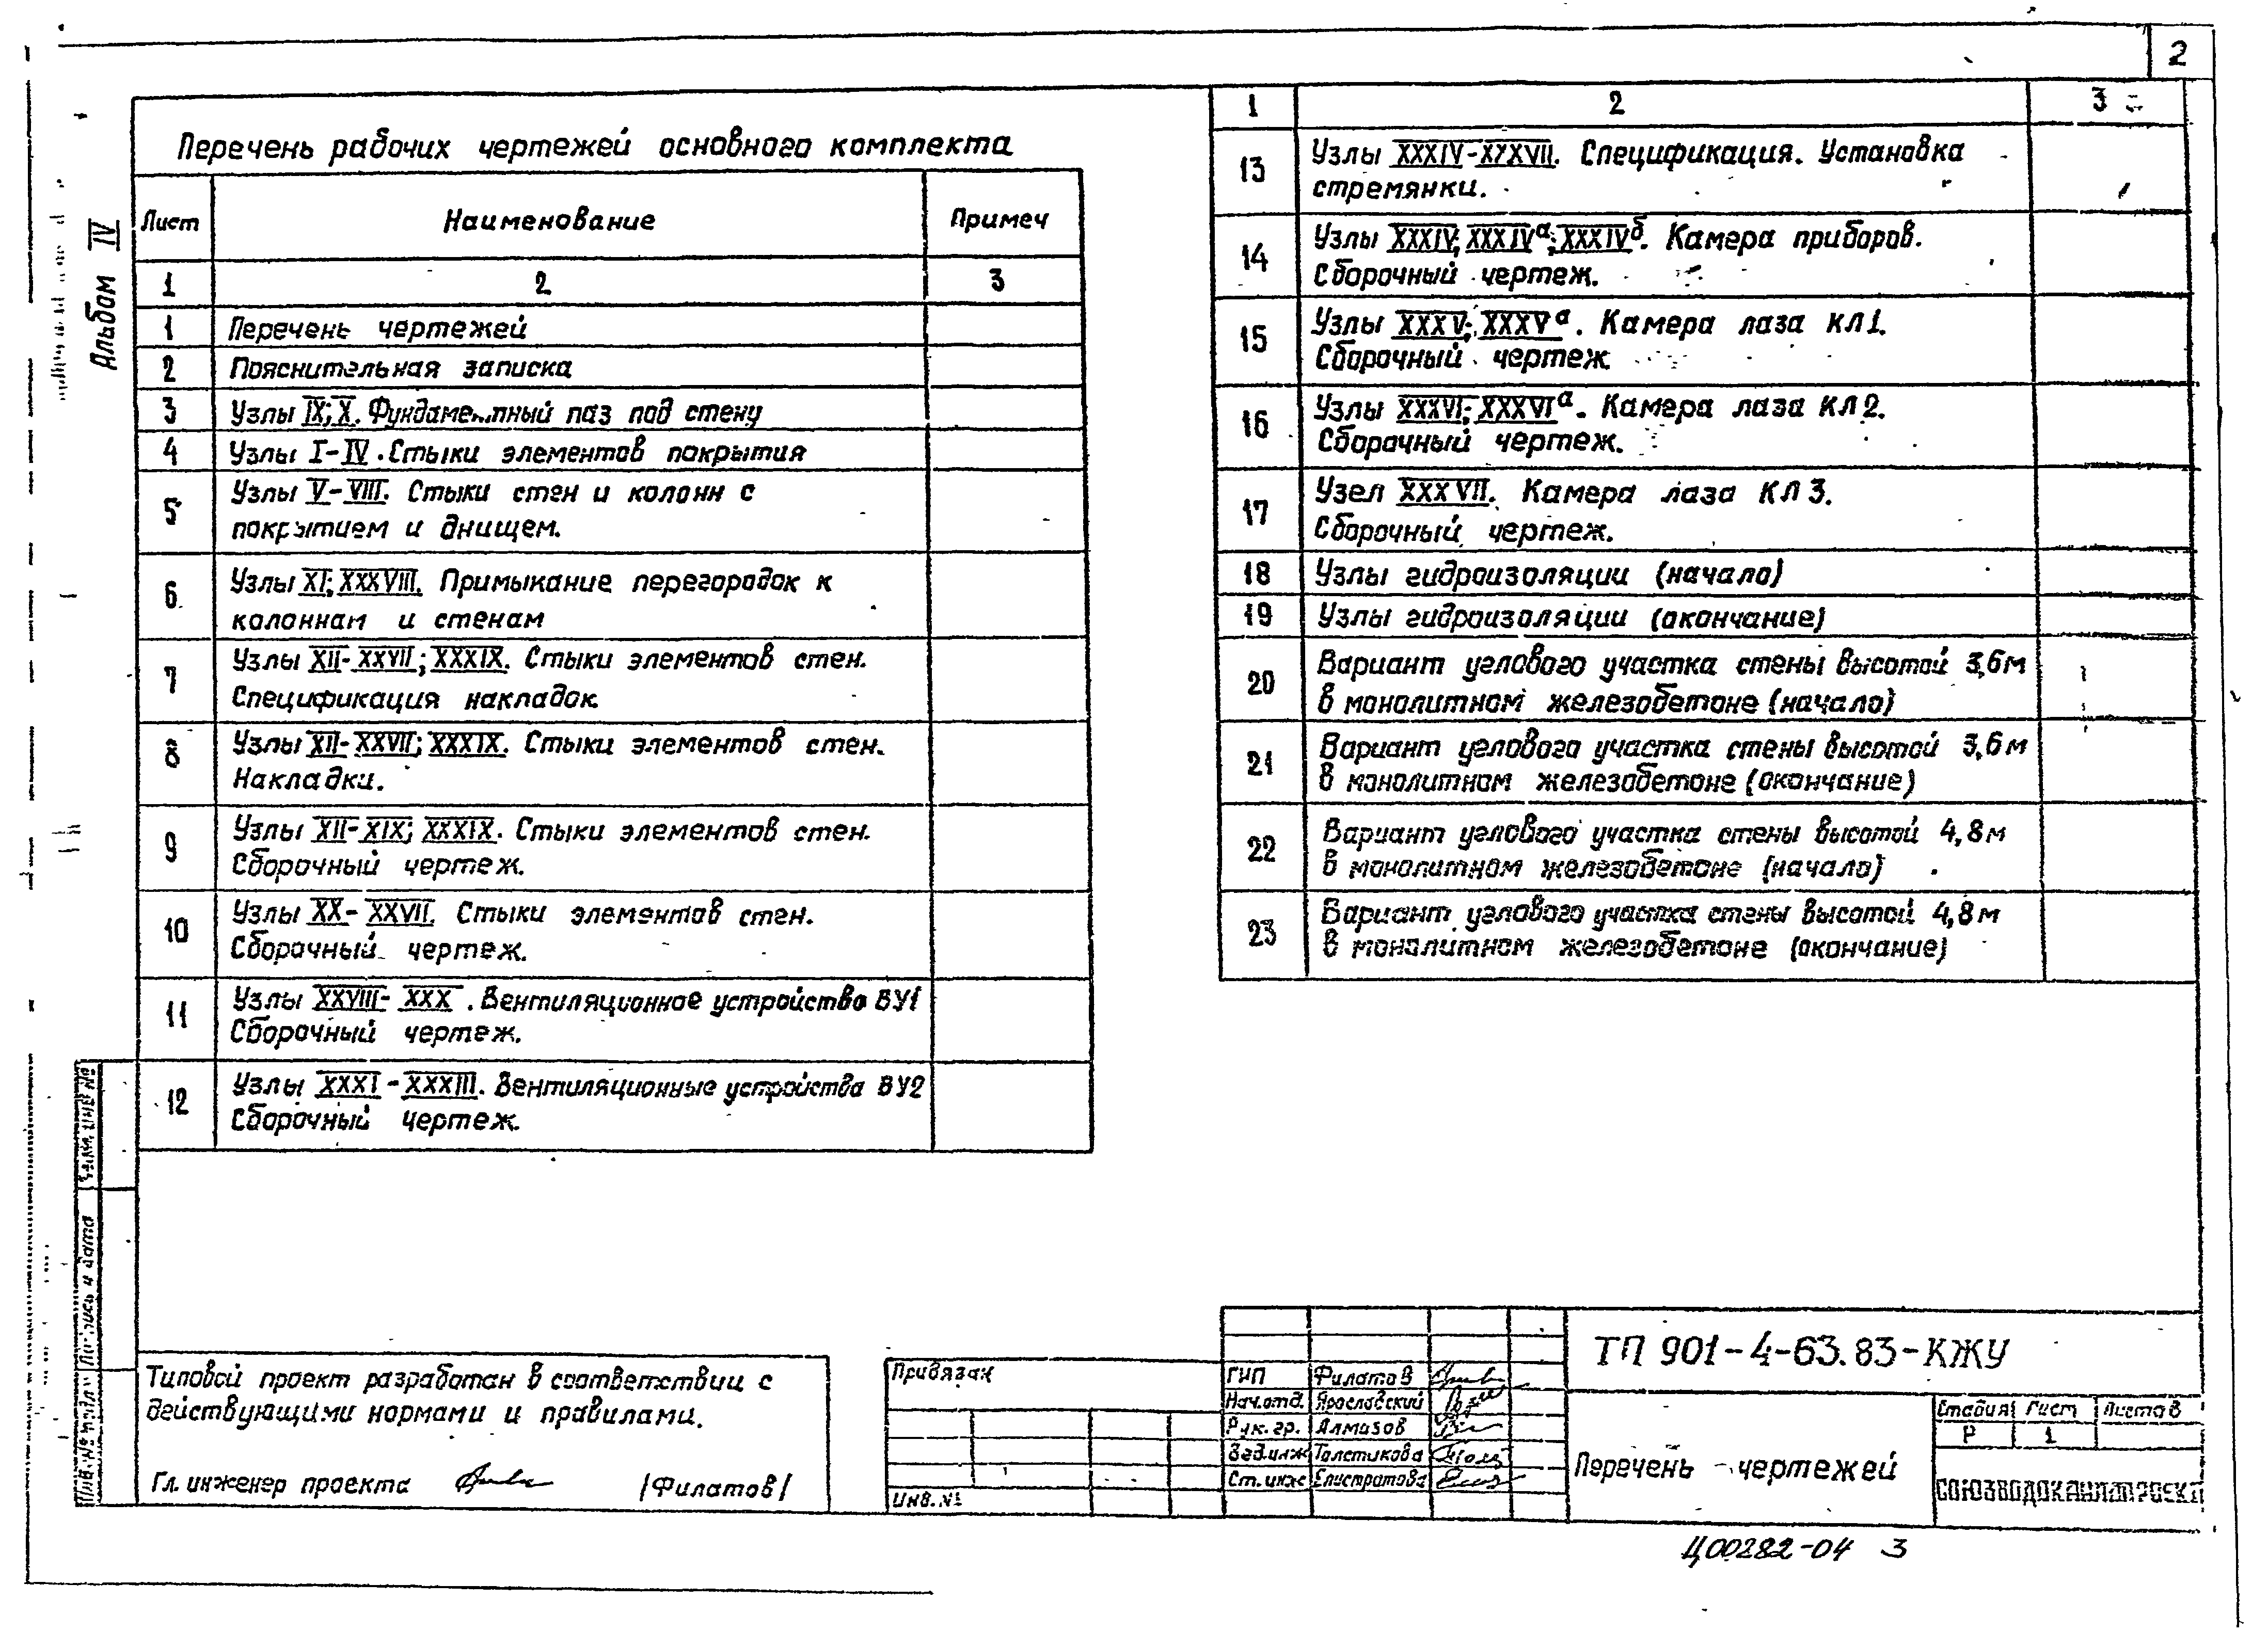 2
Альбом IV
Перечень рабочих чертежей основного комплекта
Лист Наименование Примеч
1 2 3
1 Перечень чертежей
2 Пояснительная записка
3 Узлы IX; X. Фундаментный паз под стену
4 Узлы I-IV. Стыки элементов покрытия
5 Узлы V-VIII. Стыки стен и колонн с
покрытием и днищем.
6 Узлы XI; XXXVIII. Примыкание перегородок к
колоннам и стенам
7 Узлы XII-XXVII; XXXIX. Стыки элементов стен.
Спецификация накладок
8 Узлы XII-XXVII; XXXIX. Стыки элементов стен.
Накладки.
9 Узлы XII-XIX; XXXIX. Стыки элементов стен.
Сборочный чертеж.
10 Узлы XX-XXVII. Стыки элементов стен.
Сборочный чертеж.
11 Узлы XXVIII-XXX. Вентиляционное устройство ВУ1
Сборочный чертеж.
12 Узлы XXXI-XXXIII. Вентиляционные устройства ВУ2
Сборочный чертеж.
1 2 3
13 Узлы XXXIV-XXXVII. Спецификация. Установка
стремянки.
14 Узлы XXXIV; XXXIVа; XXXIVб. Камера приборов.
Сборочный чертеж.
15 Узлы XXXV; XXXVа. Камера лаза КЛ1.
Сборочный чертеж
16 Узлы XXXVI; XXXVIа. Камера лаза КЛ2.
Сборочный чертеж.
17 Узел XXXVII. Камера лаза КЛ3.
Сборочный чертеж.
18 Узлы гидроизоляции (начало)
19 Узлы гидроизоляции (окончание)
20 Вариант углового участка стены высотой 3,6м
в монолитном железобетоне (начало)
21 Вариант углового участка стены высотой 3,6м
в монолитном железобетоне (окончание)
22 Вариант углового участка стены высотой 4,8м
в монолитном железобетоне (начало)
23 Вариант углового участка стены высотой 4,8м
в монолитном железобетоне (окончание)
Типовой проект разработан в соответствии с
действующими нормами и правилами.
Гл. инженер проекта /Филатов/
Привязан
Инв. №
ГИП Филатов
Нач.отд. Ярославский
Рук. гр. Алмазов
Вед.инж Толстикова
Ст. инж Елистратова
ТП 901-4-63.83-КЖУ
Перечень чертежей
Стадия Лист Листов
Р 1
СОЮЗВОДОКАНАЛПРОЕКТ
Взам. инв №
Подпись и дата
Инв. № подл.
Ц00282-04 3